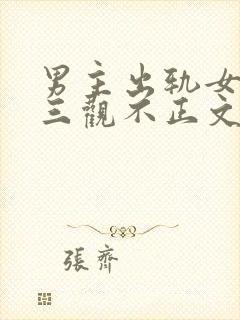 男主出轨女
三觀不正文
張齊